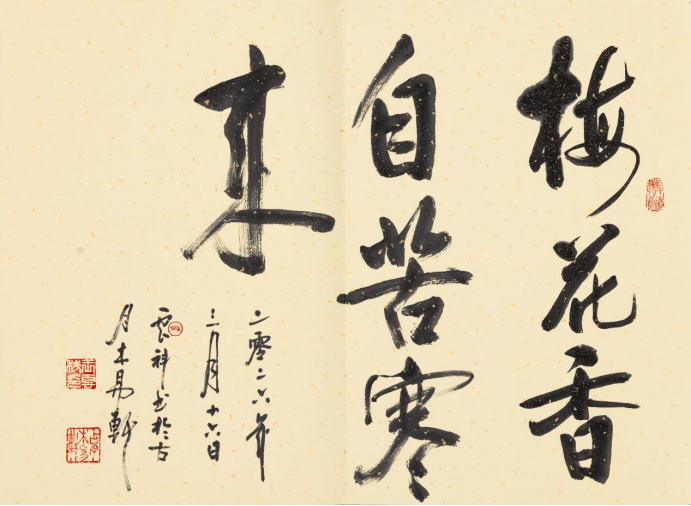 梅花香
自苦寒
来
二零二六年
三月十六日
云祥书於古
月木易軒